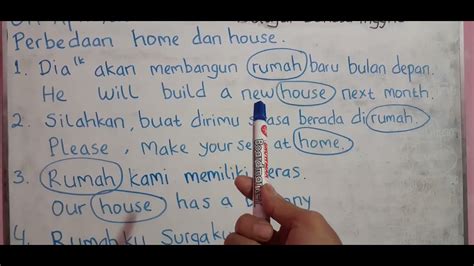 Perbedaan home dan house.
1. Dia lk akan membangun rumah baru bulan depan.
He will build a new house next month.
2. Silahkan, buat dirimu berada di rumah.
Please, make at home.
3. Rumah kami memiliki
Our house has a
4. Rumahku